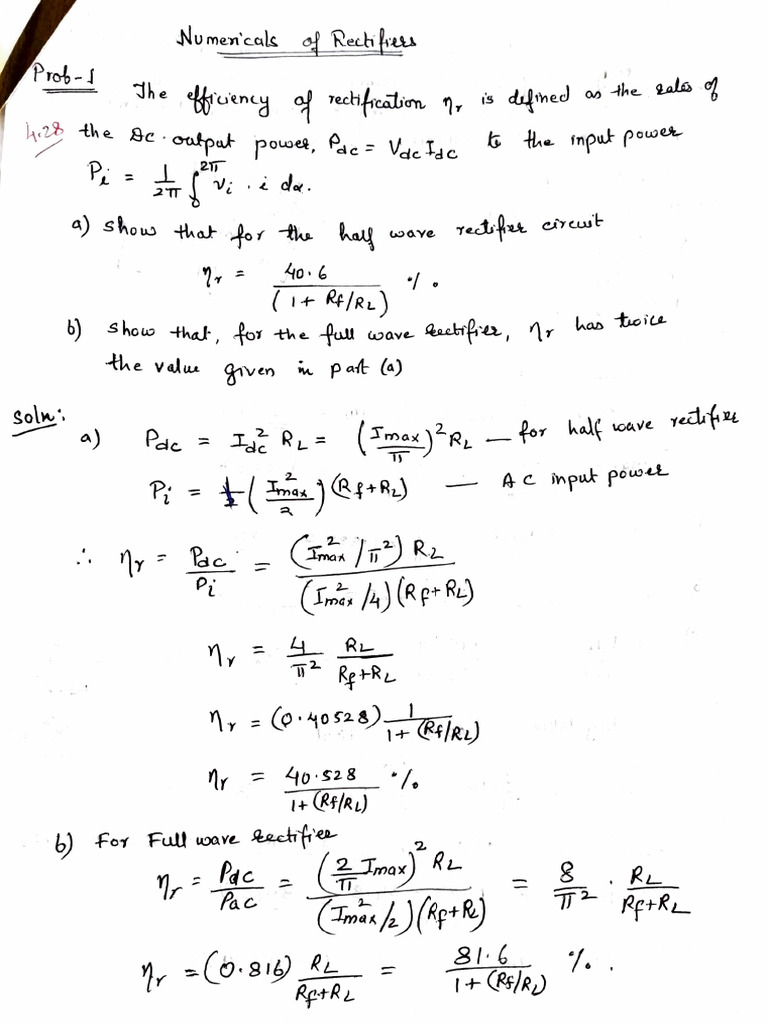 Numericals of Rectifiers
Prob-1 The efficiency of rectification ηr is defined as the ratio of
4.28 the Dc output power, Pdc = Vdc Idc to the input power
Pi = 1/2π ∫₀^2π vi . i dα.
a) show that for the half wave rectifier circuit
ηr = 40.6 / (1 + Rf/RL) %.
b) show that, for the full wave rectifier, ηr has twice
the value given in part (a)
Soln:
a) Pdc = Idc² RL = (Imax/π)² RL — for half wave rectifier
Pi = 1/2 (Imax²/2) (Rf+RL) — AC input power
∴ ηr = Pdc/Pi = (Imax²/π²) RL / (Imax²/4)(Rf+RL)
ηr = 4/π² RL/Rf+RL
ηr = (0.40528) 1/1+(Rf/RL)
ηr = 40.528/1+(Rf/RL) %
b) For Full wave rectifier
ηr = Pdc/Pac = (2/π Imax)² RL / (Imax²/2)(Rf+RL) = 8/π² . RL/Rf+RL
ηr = (0.816) RL/Rf+RL = 81.6/1+(Rf/RL) %.